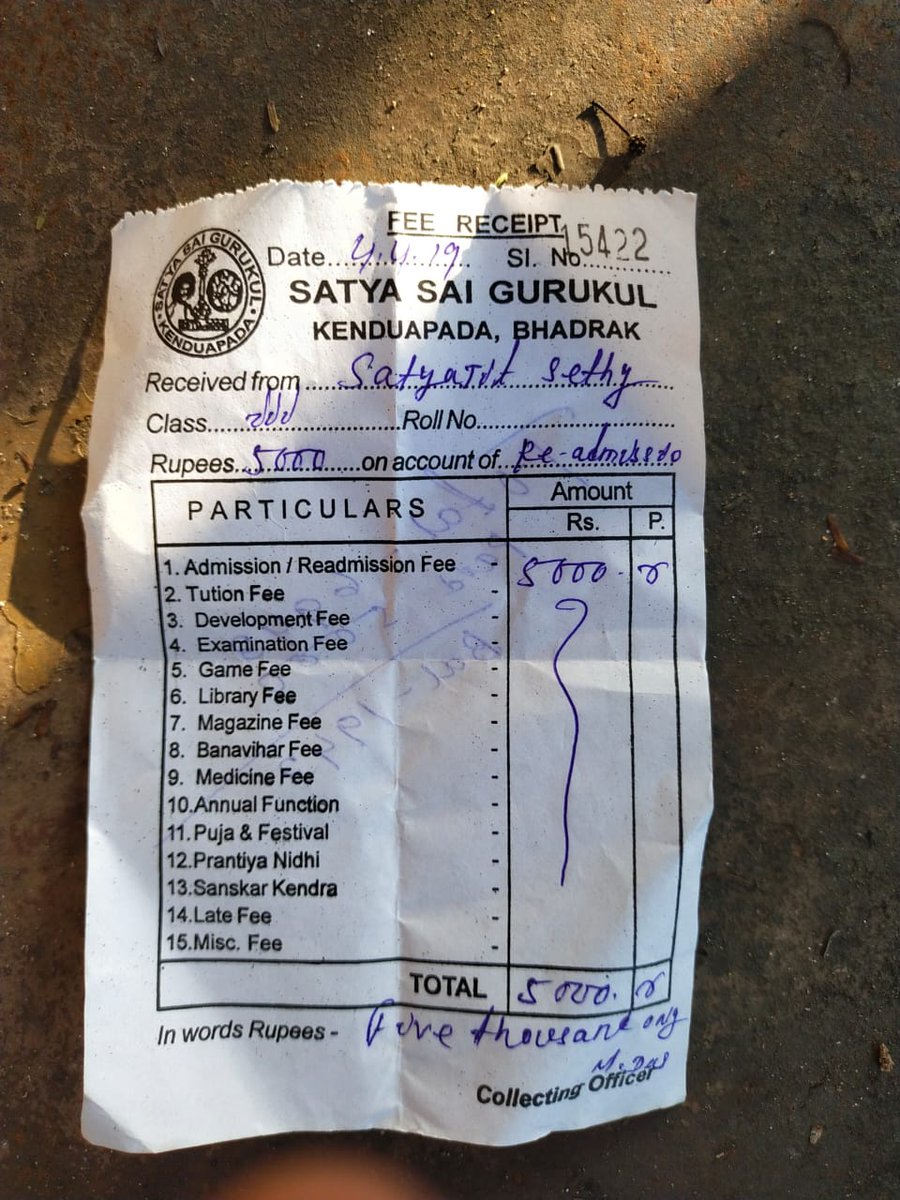 FEE RECEIPT
SATYA SAI GURUKUL
KENDUAPADA
Date....4.4.19.... Sl. No.15422
SATYA SAI GURUKUL
KENDUAPADA, BHADRAK
Received from Satyajit Sethy
Class.... Roll No....
Rupees 5000 on account of Re-admissio
PARTICULARS Amount
Rs. P.
1. Admission / Readmission Fee - 5000.
2. Tution Fee -
3. Development Fee -
4. Examination Fee -
5. Game Fee -
6. Library Fee -
7. Magazine Fee -
8. Banavihar Fee -
9. Medicine Fee -
10.Annual Function -
11.Puja & Festival -
12.Prantiya Nidhi -
13.Sanskar Kendra -
14.Late Fee -
15.Misc. Fee -
TOTAL 5000.
In words Rupees - Five thousand only
M. Das
Collecting Officer